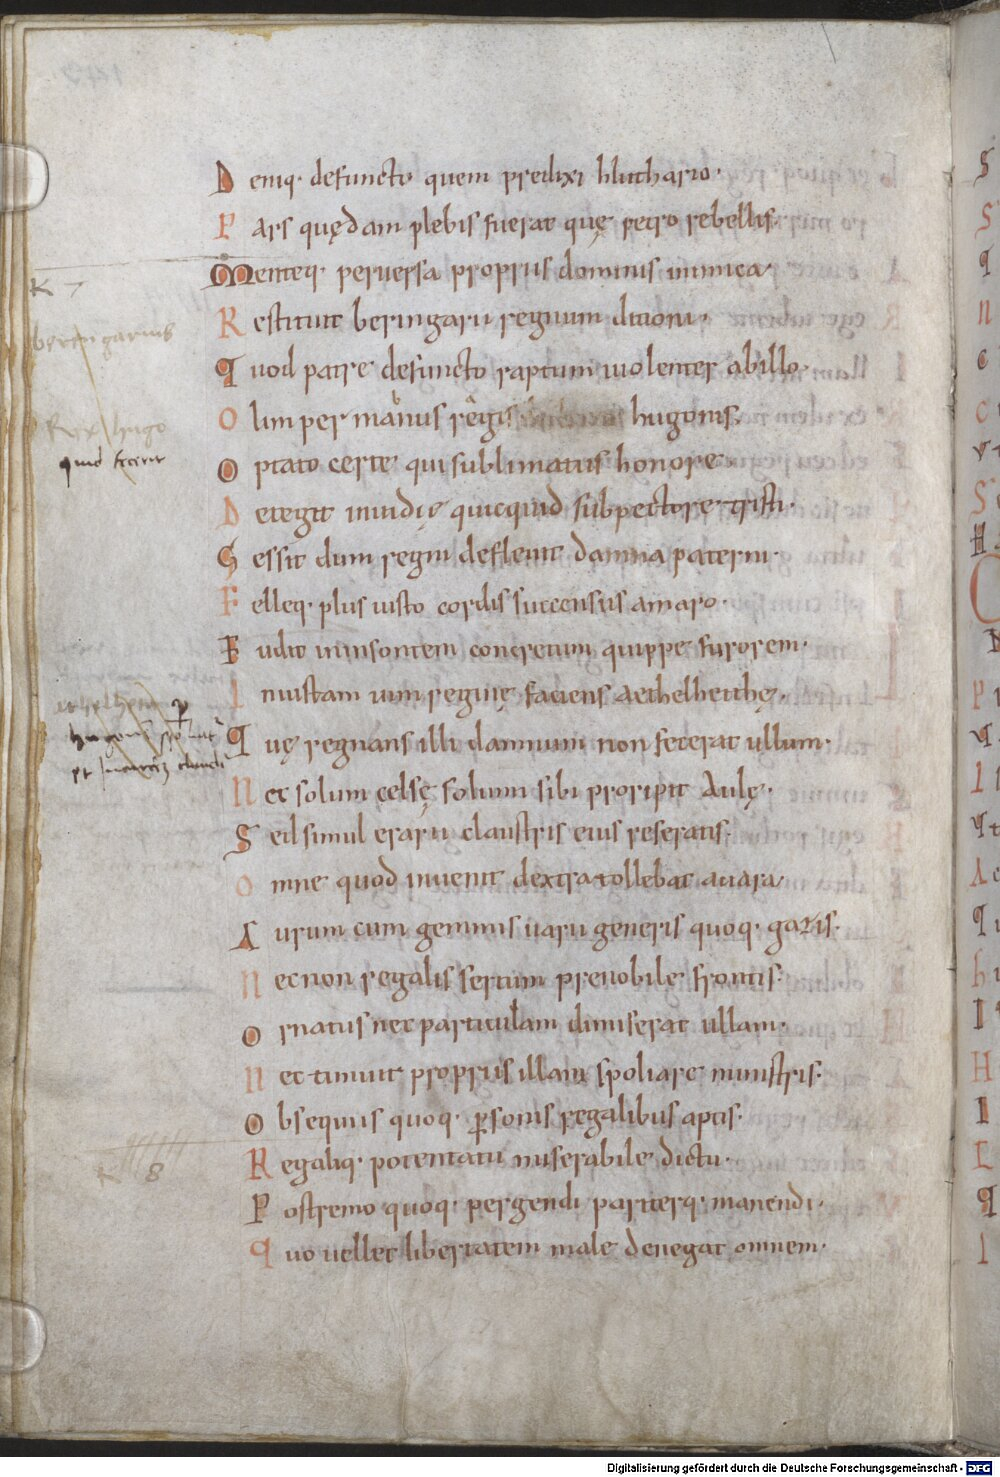 Deniq· defuncto quem predixi hluthario·
Pars quędam plebis fuerat quę retro rebellis·
Menteq· peruersa propriis dominis inimica·
K 7
Restituit beringarii regnum ditioni·
berengarius
Quod patre defuncto raptum uiolenter ab illo·
Olim per manus regis hugonis·
Rex hugo
Optato certe qui sublimatus honore·
quid fecerit
Detegit inuidię quicquid sub pectore tristi·
Gessit dum regni defleuit damna paterni·
Felleq· plus iusto cordis succensus amaro·
Fudit in insontem concretum quippe furorem·
Iniustam uim reginę faciens aethelheithę·
Quę regnans illi damnum non fecerat ullum·
Nec solum celsę solium sibi proripit Aulę·
Sed simul erarii claustris eius reseratis·
Omne quod inuenit dextra tollebat auara·
Aurum cum gemmis uarii generis quoq· gazis·
Necnon regalis sertum prenobile frontis·
Ornatus nec particulam dimiserat ullam·
Nec timuit propriis illam spoliare ministris·
Obsequiis quoq· psonis regalibus aptis·
Regaliq· potentatu miserabile dictu·
K 8
Postremo quoq· pergendi pariterq· manendi·
Quo uellet libertatem male denegat omnem·
Digitalisierung gefördert durch die Deutsche Forschungsgemeinschaft - DFG